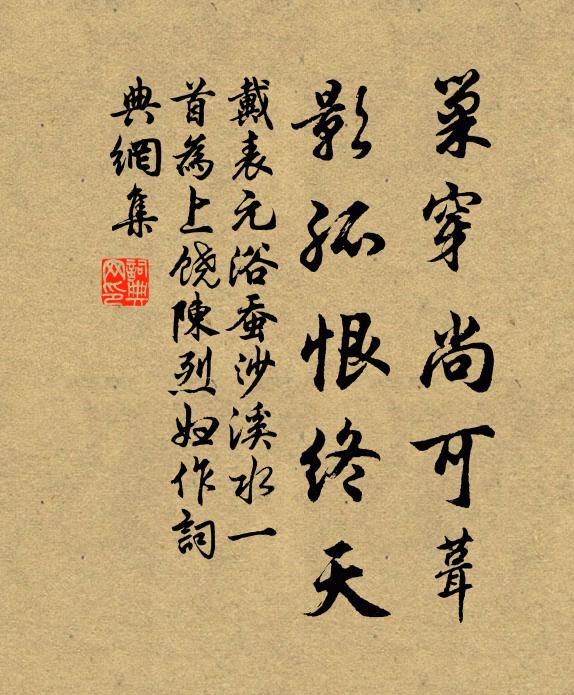 巢穿尚可葺
影孤恨终天
戴表元浴蚕沙溪水一
首為上饶陳烈妇作詞
典網集
詞典
网印